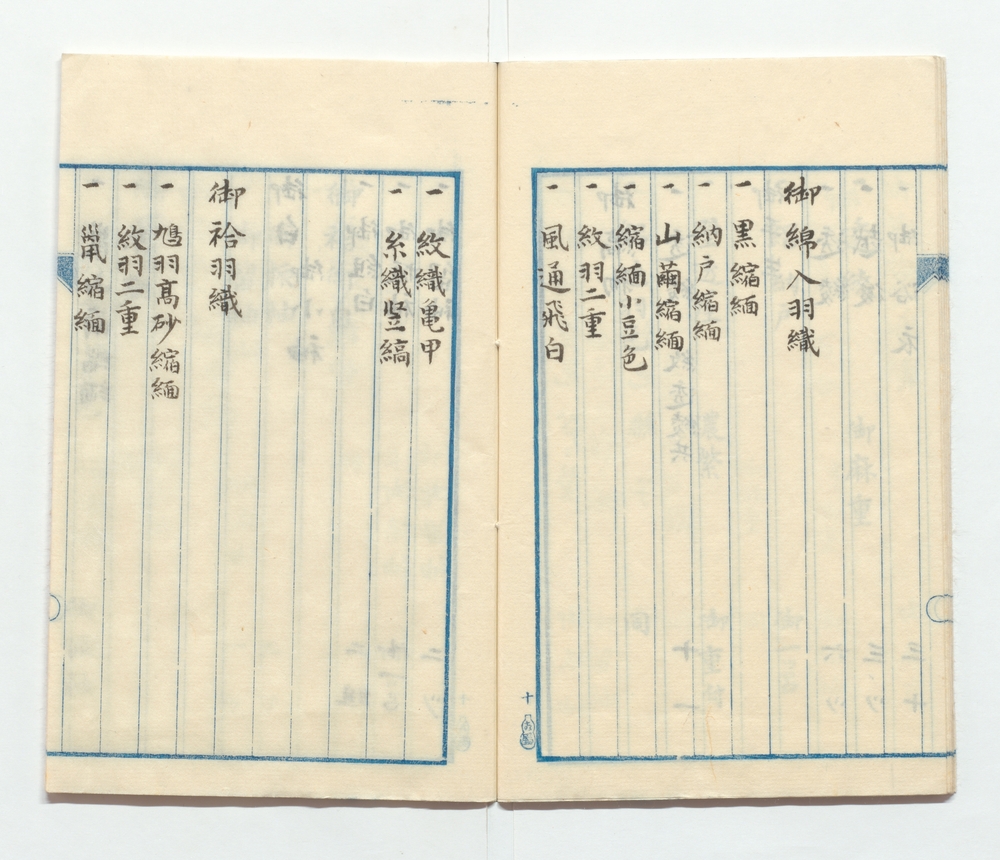 御綿入羽織
一 黒縮緬
一 納戸縮緬
一 山繭縮緬
一 縮緬小豆色
一 紋羽二重
一 風通飛白
一 紋織亀甲
一 糸織竪縞
御袷羽織
一 鳩羽高砂縮緬
一 紋羽二重
一 縮緬
十